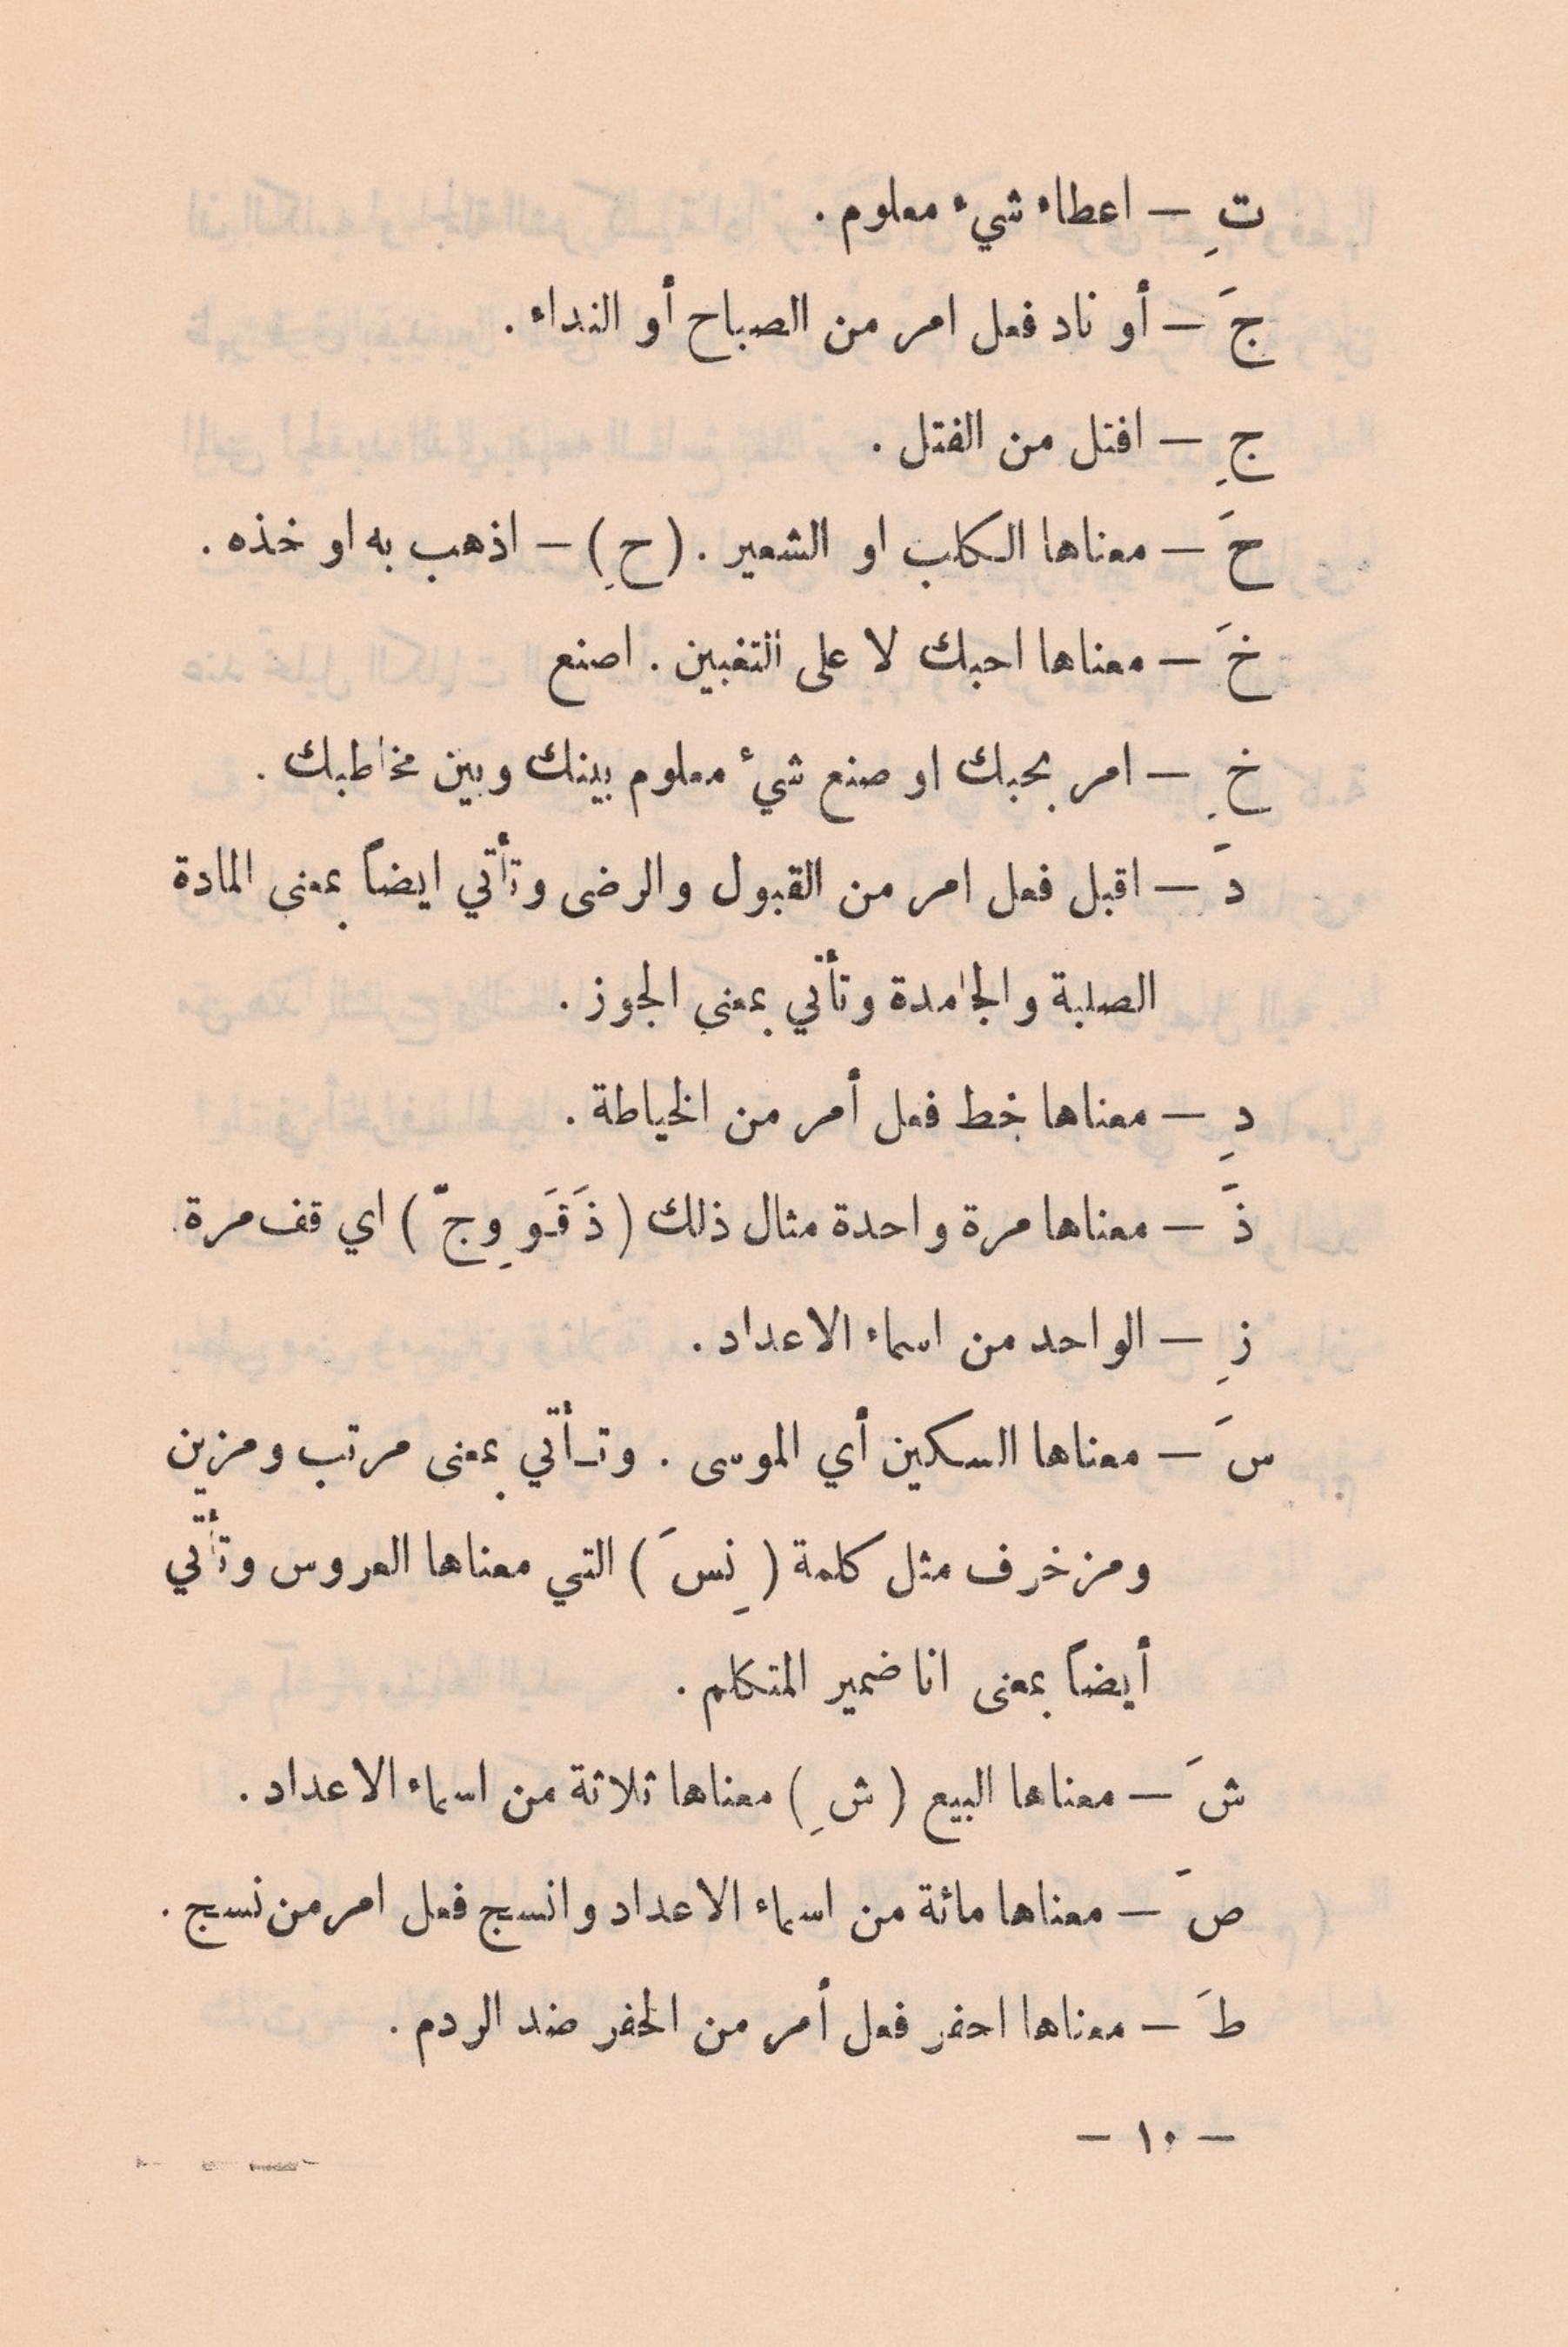 تِ — اعطاء شيء معلوم .
جَ — أو ناد فعل امر من الصباح أو النداء .
جِ — افتل من الفتل .
حَ — معناها الكلب او الشعير . (حِ) — اذهب به او خذه .
خَ — معناها احبك لا على التغبين . اصنع
خِ — امر بحبك او صنع شيء معلوم بينك وبين مخاطبك .
دَ — اقبل فعل امر من القبول والرضى وتأتي ايضاً بمعنى المادة
الصلبة والجامدة وتأتي بمعنى الجوز .
دِ — معناها خط فعل أمر من الخياطة .
ذَ — معناها مرة واحدة مثال ذلك ( ذَقَـوِ وجّ ) اي قف مرة .
زِ — الواحد من اسماء الاعداد .
سَ — معناها السكين أي الموسى . وتـأتي بمعنى مرتب ومزين
ومزخرف مثل كلمة ( نِسَ ) التي معناها العروس وتأتي
أيضاً بمعنى انا ضمير المتكلم .
شَ — معناها البيع ( شِ ) معناها ثلاثة من اسماء الاعداد .
صَ — معناها مائة من اسماء الاعداد وانسج فعل امر من نسج .
طَ — معناها احفر فعل أمر من الحفر ضد الردم .
— ١٠ —